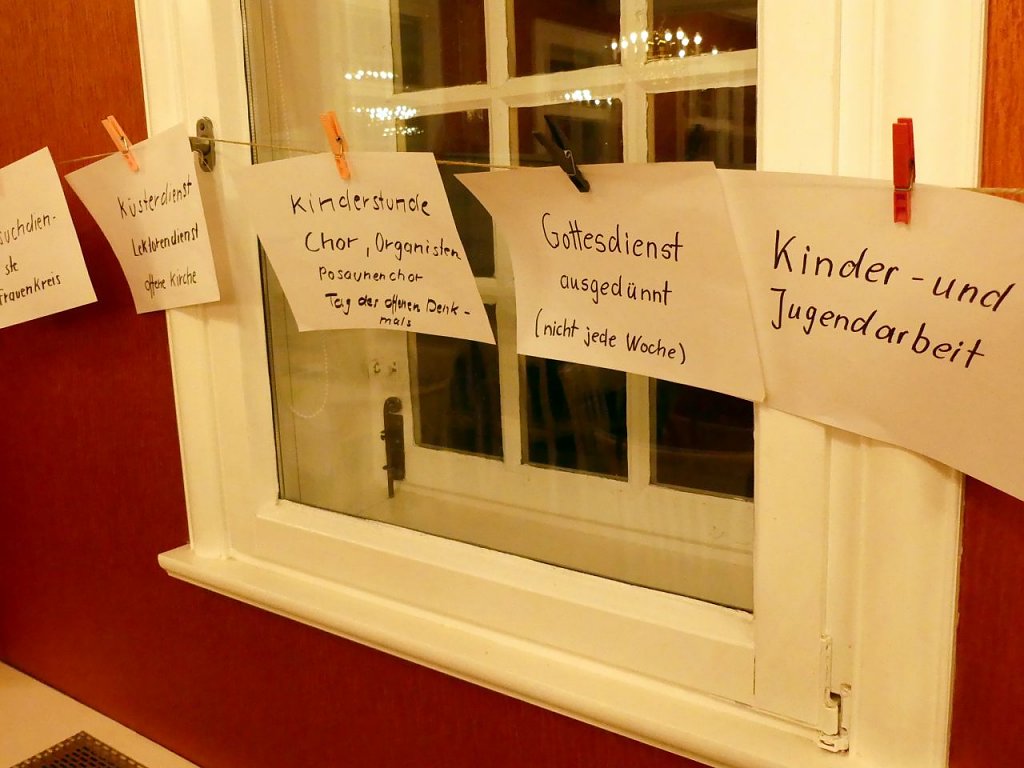 suchdien-
ste
Frauenkreis
Küsterdienst
Lektorendienst
offene Kirche
Kinderstunde
Chor, Organisten
Posaunenchor
Tag des offenen Denk-
mals
Gottesdienst
ausgedünnt
(nicht jede Woche)
Kinder-und
Jugendarbeit